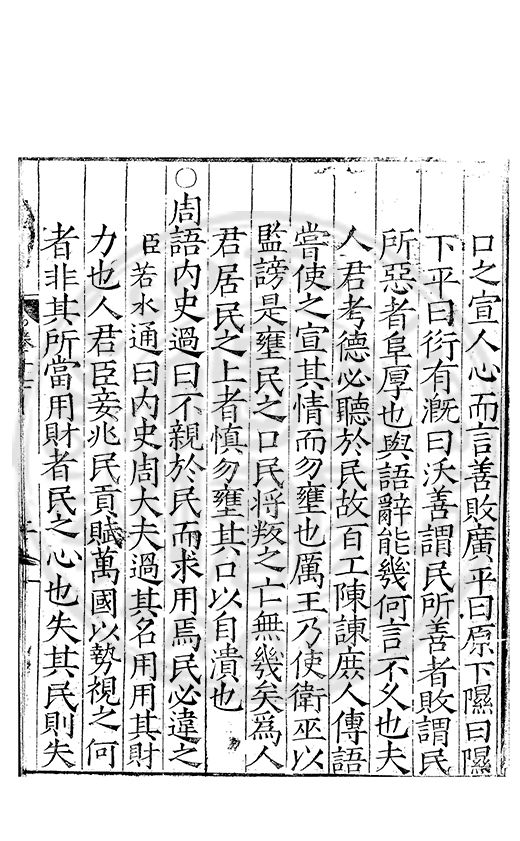 口之宣人心而言善敗廣平曰原下隰曰隰
下平曰衍有漑曰沃善謂民所善者敗謂民
所惡者阜厚也與語辭能幾何言不久也夫
人君考德必聽於民故百工陳諫庶人傳語
嘗使之宣其情而勿壅也厲王乃使衛巫以
監謗是壅民之口民將叛之亡無幾矣爲人
君居民之上者慎勿壅其口以自潰也
○周語内史過曰不親於民而求用焉民必違之
臣若水通曰内史周大夫過其名用用其財
力也人君臣妾兆民貢賦萬國以勢視之何
者非其所當用財者民之心也失其民則失